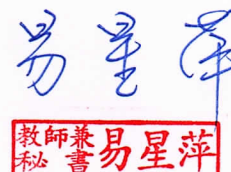 易星萍
教師兼
秘書 易星萍